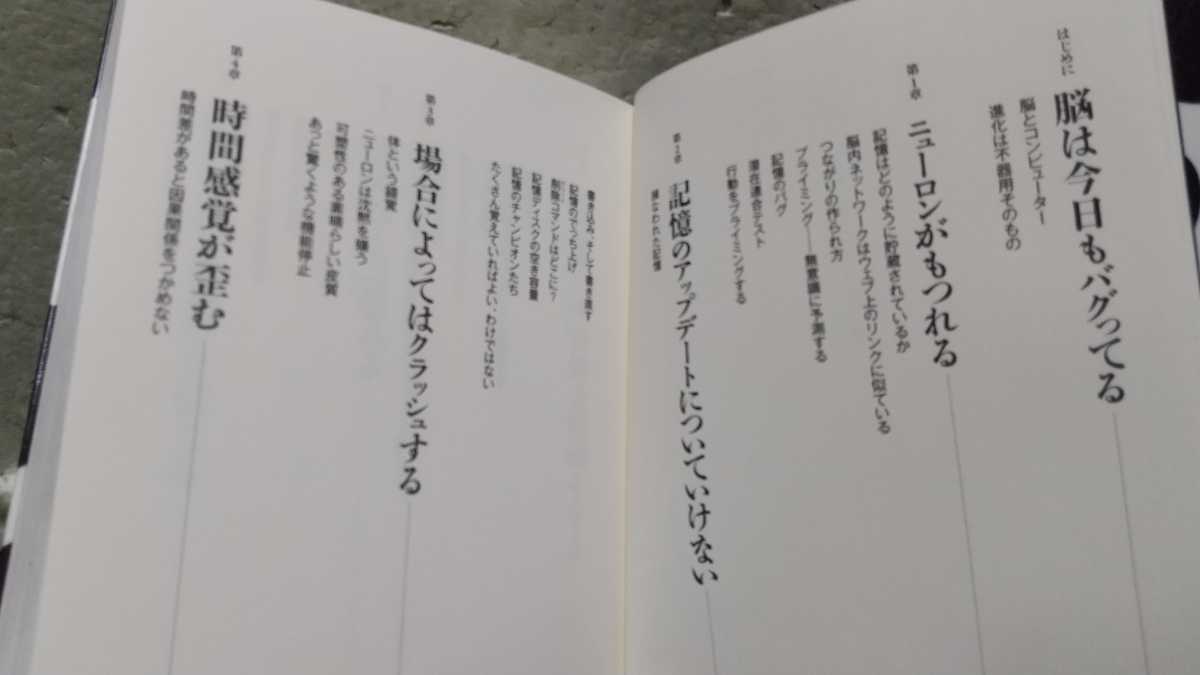 はじめに
脳は今日もバグってる
脳とコンピューター
進化は不器用そのもの
第1章
ニューロンがもつれる
記憶はどのように貯蔵されているか
脳内ネットワークはウェブ上のリンクに似ている
つながりの作られ方
プライミング——無意識に予測する
記憶のバグ
潜在連合テスト
行動をプライミングする
第2章
記憶のアップデートについていけない
損なわれた記憶
書き込み、そして書き直す
記憶のでっち上げ
削除コマンドはどこに?
記憶ディスクの空き容量
記憶のチャンピオンたち
たくさん覚えていればよい、わけではない
第3章
場合によってはクラッシュする
体という錯覚
ニューロンは沈黙を嫌う
可塑性のある素晴らしい皮質
あっと驚くような機能停止
第4章
時間感覚が歪む
時間差があると因果関係をつかめない